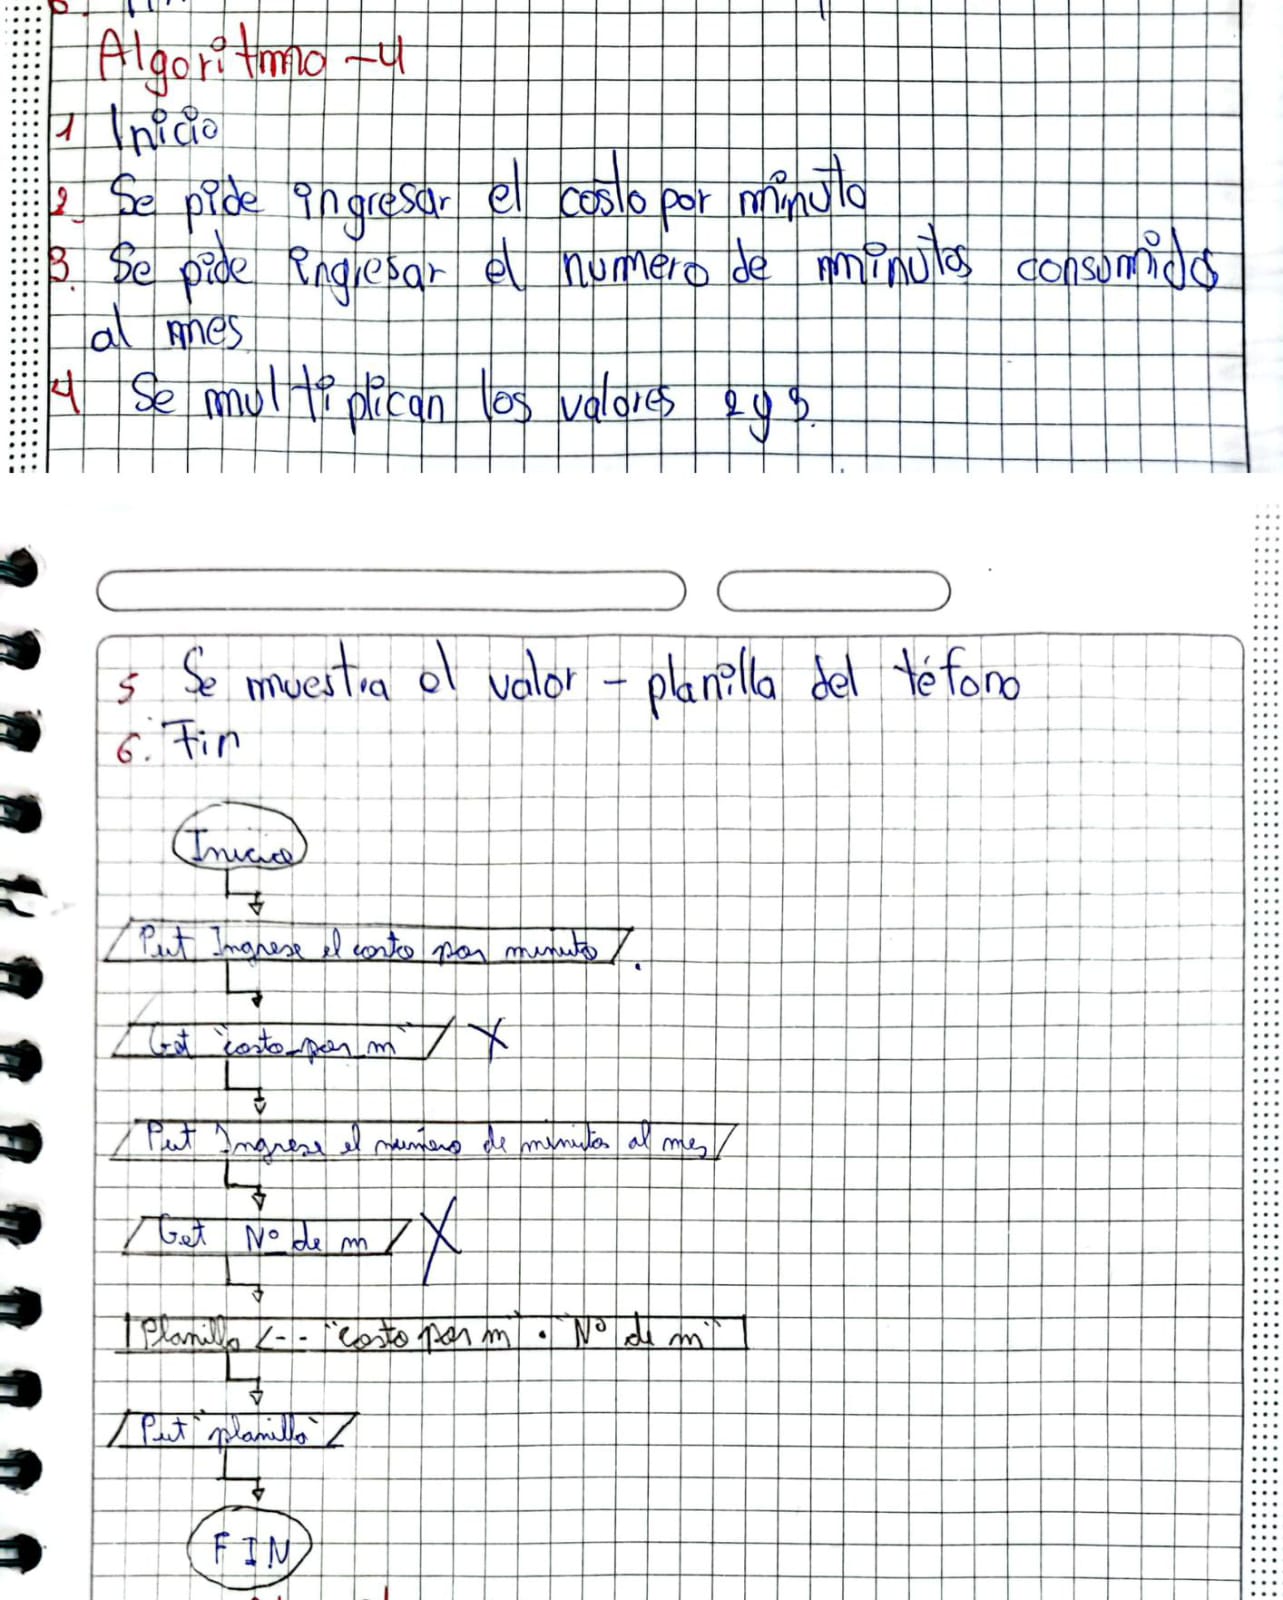 Algoritmo -4
1 Inicio
2. Se pide ingresar el costo por minuto
3. Se pide ingresar el numero de minutos consumidos
al mes
4 Se multiplican los valores 2 y 3.
5 Se muestra el valor - planilla del téfono
6. Fin
Inicio
Put Ingrese el costo por minuto
Get "costo_por_m" X
Put Ingrese el numero de minutos al mes
Get Nº de m X
Planilla <-- "costo por m" • "Nº de m"
Put "planilla"
FIN